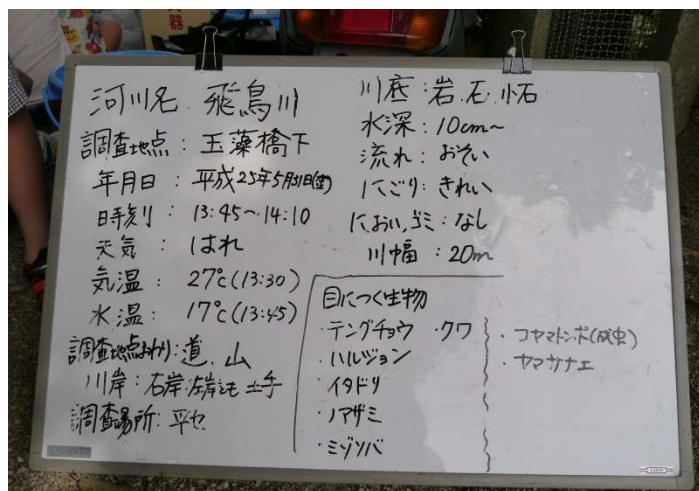 河川名 飛鳥川
調査地点：玉藻橋下
年月日：平成25年5月31日(金)
日時刻：13:45〜14:10
天気：はれ
気温：27℃(13:30)
水温：17℃(13:45)
調査地点まわり：道、山
川岸：右岸・左岸とも 土手
調査場所：平セ
川底：岩、石、小石
水深：10cm〜
流れ：おそい
にごり：きれい
におい、ゴミ：なし
川幅：20m
目につく生物
・テングチョウ ・クワ
・ハルジョン
・イタドリ
・ノアザミ
・ミゾソバ
・コヤマトンボ(成虫)
・ヤマサナエ